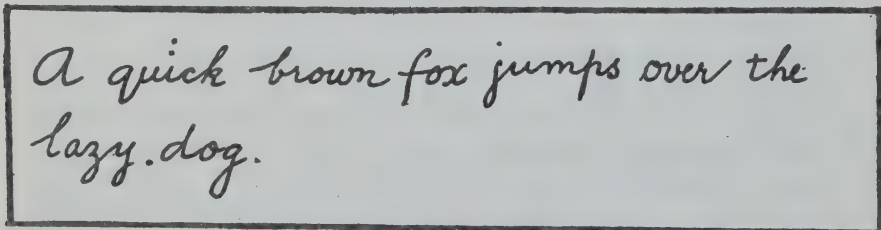 A quick brown fox jumps over the
lazy.dog.